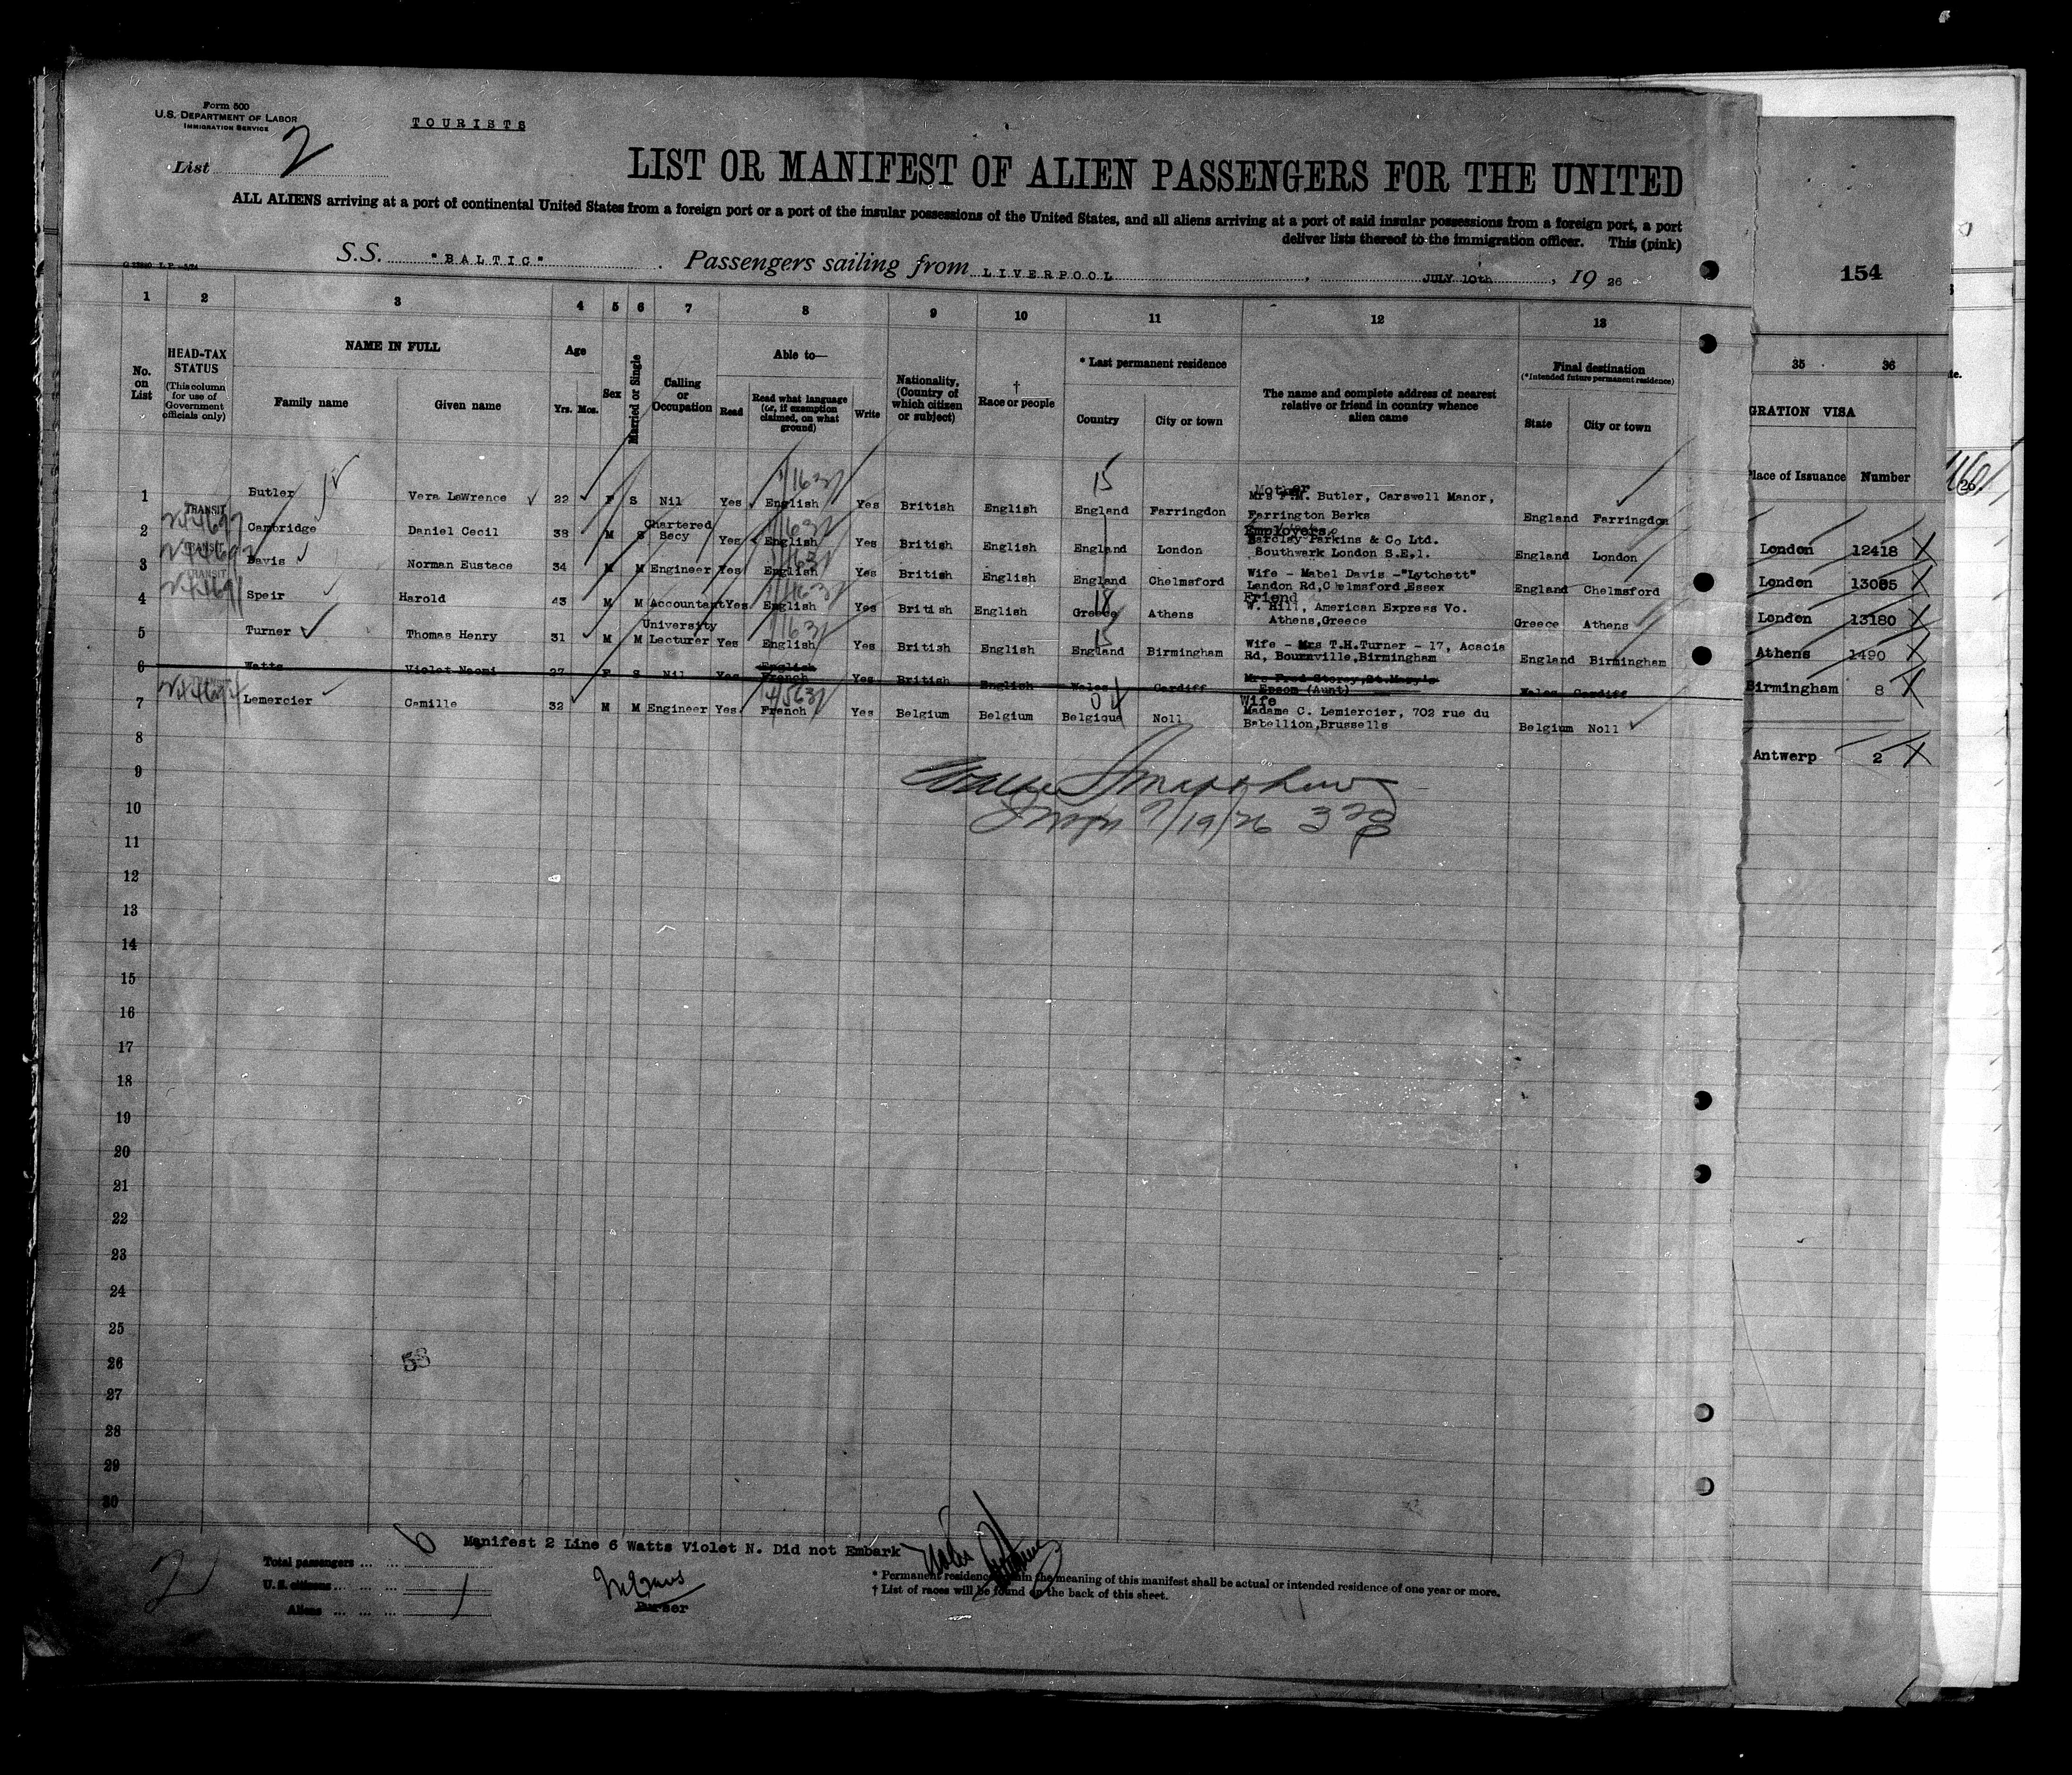 Form 500
U.S. DEPARTMENT OF LABOR
IMMIGRATION SERVICE
TOURISTS
List 2
LIST OR MANIFEST OF ALIEN PASSENGERS FOR THE UNITED
ALL ALIENS arriving at a port of continental United States from a foreign port or a port of the insular possessions of the United States, and all aliens arriving at a port of said insular possessions from a foreign port, a port
deliver lists thereof to the immigration officer. This (pink)
S.S. "BALTIC". Passengers sailing from LIVERPOOL, JULY 10th, 19 26
154
1 2 3 4 5 6 7 8 9 10 11 12 13 35 36
No. on List
HEAD-TAX STATUS
(This column for use of Government officials only)
NAME IN FULL
Family name Given name
Age
Yrs. Mos.
Sex
Married or Single
Calling or Occupation
Able to—
Read
Read what language (or, if exemption claimed, on what ground)
Write
Nationality, (Country of which citizen or subject)
† Race or people
* Last permanent residence
Country City or town
The name and complete address of nearest relative or friend in country whence alien came
Final destination
(*Intended future permanent residence)
State City or town
GRATION VISA
Place of Issuance Number
1 Butler Vera LaWrence 22 F S Nil Yes English Yes British English England Farringdon Mother Mrs F.M. Butler, Carswell Manor, Farrington Berks England Farringdon
2 TRANSIT Cambridge Daniel Cecil 38 M S Chartered Secy Yes English Yes British English England London Employers Barclay Parkins & Co Ltd. Southwark London S.E.1. England London
London 12418 X
3 TRANSIT Davis Norman Eustace 34 M M Engineer Yes English Yes British English England Chelmsford Wife - Mabel Davis -"Lytchett" London Rd,Chelmsford,Essex England Chelmsford
London 13085 X
4 TRANSIT Speir Harold 43 M M Accountant Yes English Yes British English Greece Athens Friend W. Hill, American Express Vo. Athens,Greece Greece Athens
London 13180 X
5 Turner Thomas Henry 31 M M University Lecturer Yes English Yes British English England Birmingham Wife - Mrs T.H.Turner - 17, Acacia Rd, Bournville,Birmingham England Birmingham
Athens 1490 X
6 Watts Violet Naomi 27 F S Nil Yes English French Yes British English Wales Cardiff Mrs Fred Storey,St.Mary's Epsom (Aunt) Wales Cardiff
Birmingham 8 X
7 Lemercier Camille 32 M M Engineer Yes French Yes Belgium Belgium Belgique Noll Wife Madame C. Lemiercier, 702 rue du Babellion,Brussells Belgium Noll
Antwerp 2 X
8
9
10
7/19/26
11
12
13
14
15
16
17
18
19
20
21
22
23
24
25
26
53
27
28
29
30
Manifest 2 Line 6 Watts Violet N. Did not Embark
Total passengers ... ... 6
U.S. citizens ... ...
Aliens ... ... ...
2
Purser
* Permanent residence within the meaning of this manifest shall be actual or intended residence of one year or more.
† List of races will be found on the back of this sheet.